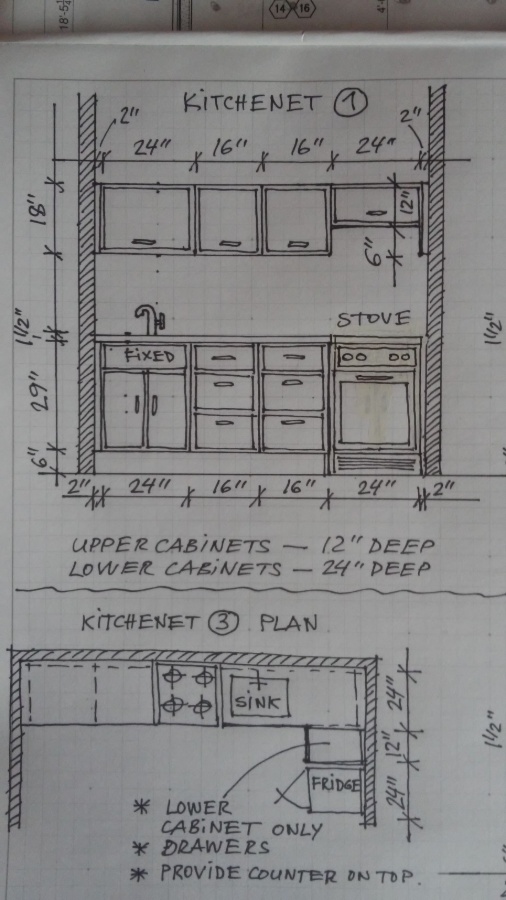 14 16
KITCHENET 1
2" 2"
24" 16" 16" 24"
18" 12"
6"
STOVE
1½" 1½"
FIXED
29"
6"
2" 24" 16" 16" 24" 2"
UPPER CABINETS — 12" DEEP
LOWER CABINETS — 24" DEEP
KITCHENET 3 PLAN
SINK 24"
12" 1½"
FRIDGE 24"
* LOWER
CABINET ONLY
* DRAWERS
* PROVIDE COUNTER ON TOP.